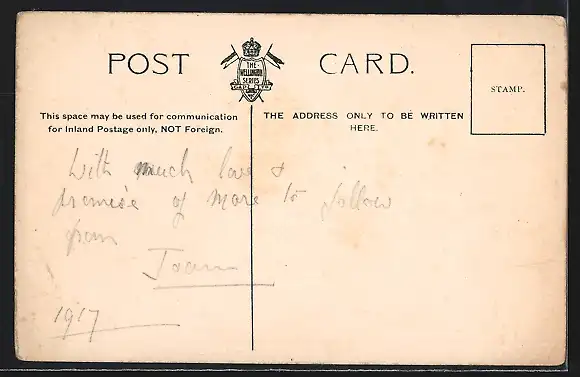 POST CARD.
THE
WELLINGTON
SERIES
STAMP.
This space may be used for communication
for Inland Postage only, NOT Foreign.
THE ADDRESS ONLY TO BE WRITTEN
HERE.
With much love &
promise of more to follow
from
Joan
1917